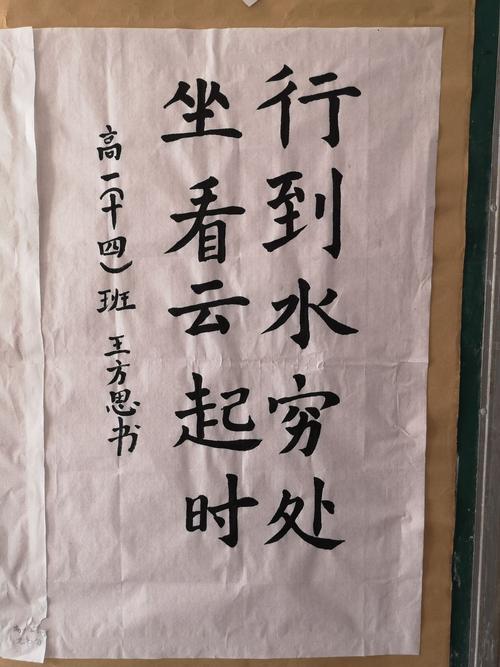 行到水穷处
坐看云起时
高一(十四)班 王方思书